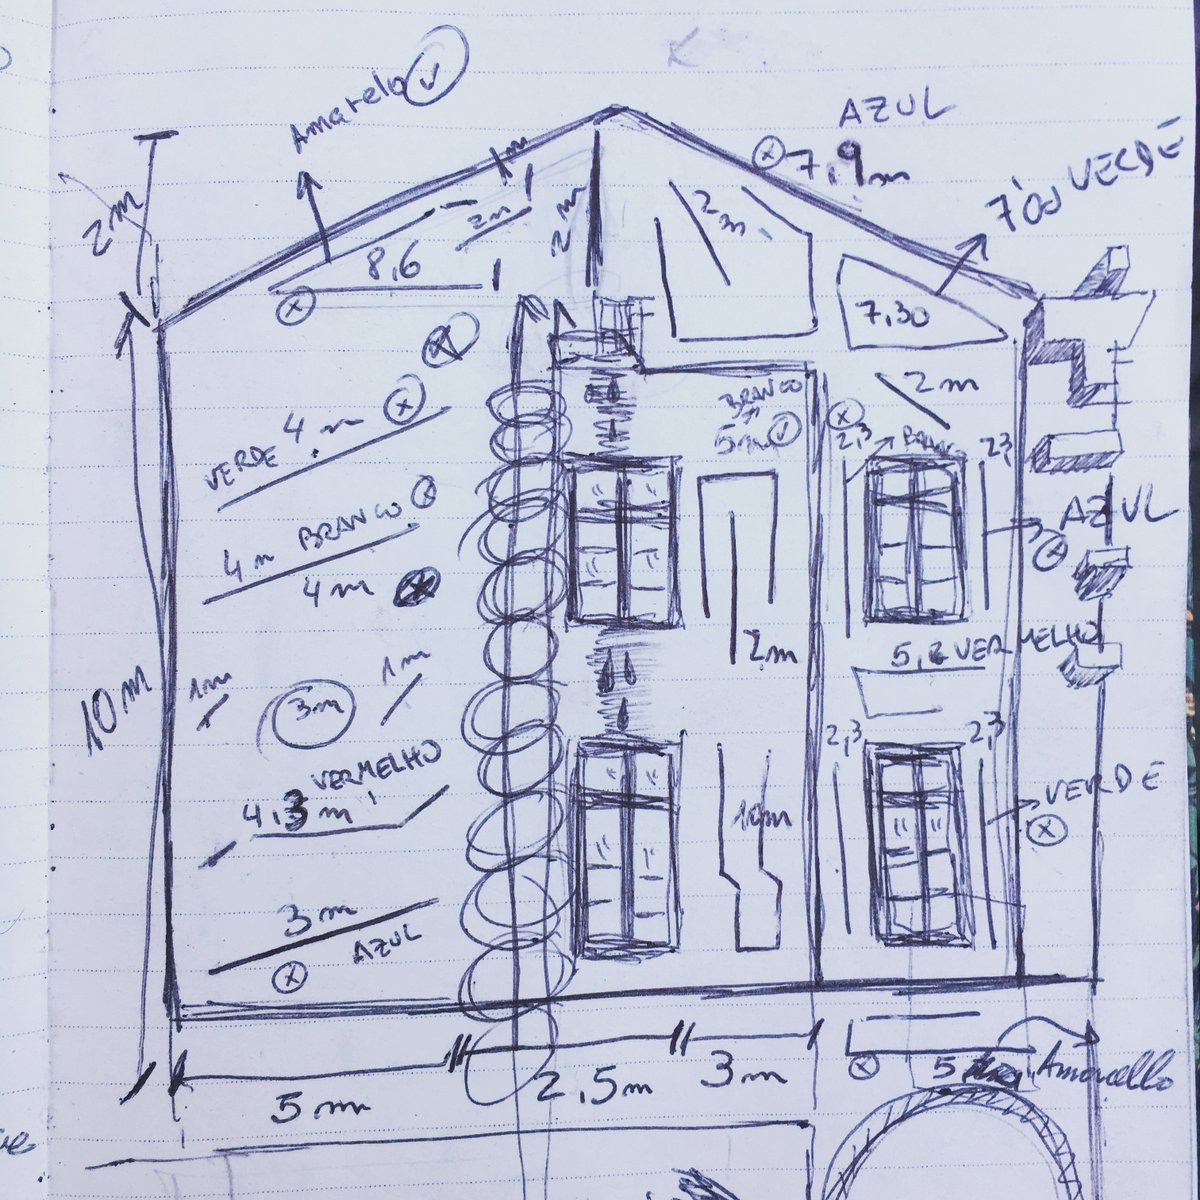 Amarelo
AZUL
7,9m
VERDE
2m
1m
2m
2m
2m
8,6
7,30
2m
VERDE 4m
BRANCO
5m
2,3
2,3
AZUL
4m BRANCO
4m
2m
5,2 VERMELHO
10m
1m
3m
1m
2,3
2,3
VERMELHO
4,3m
VERDE
3m
AZUL
5m
2,5m
3m
5
Amarello